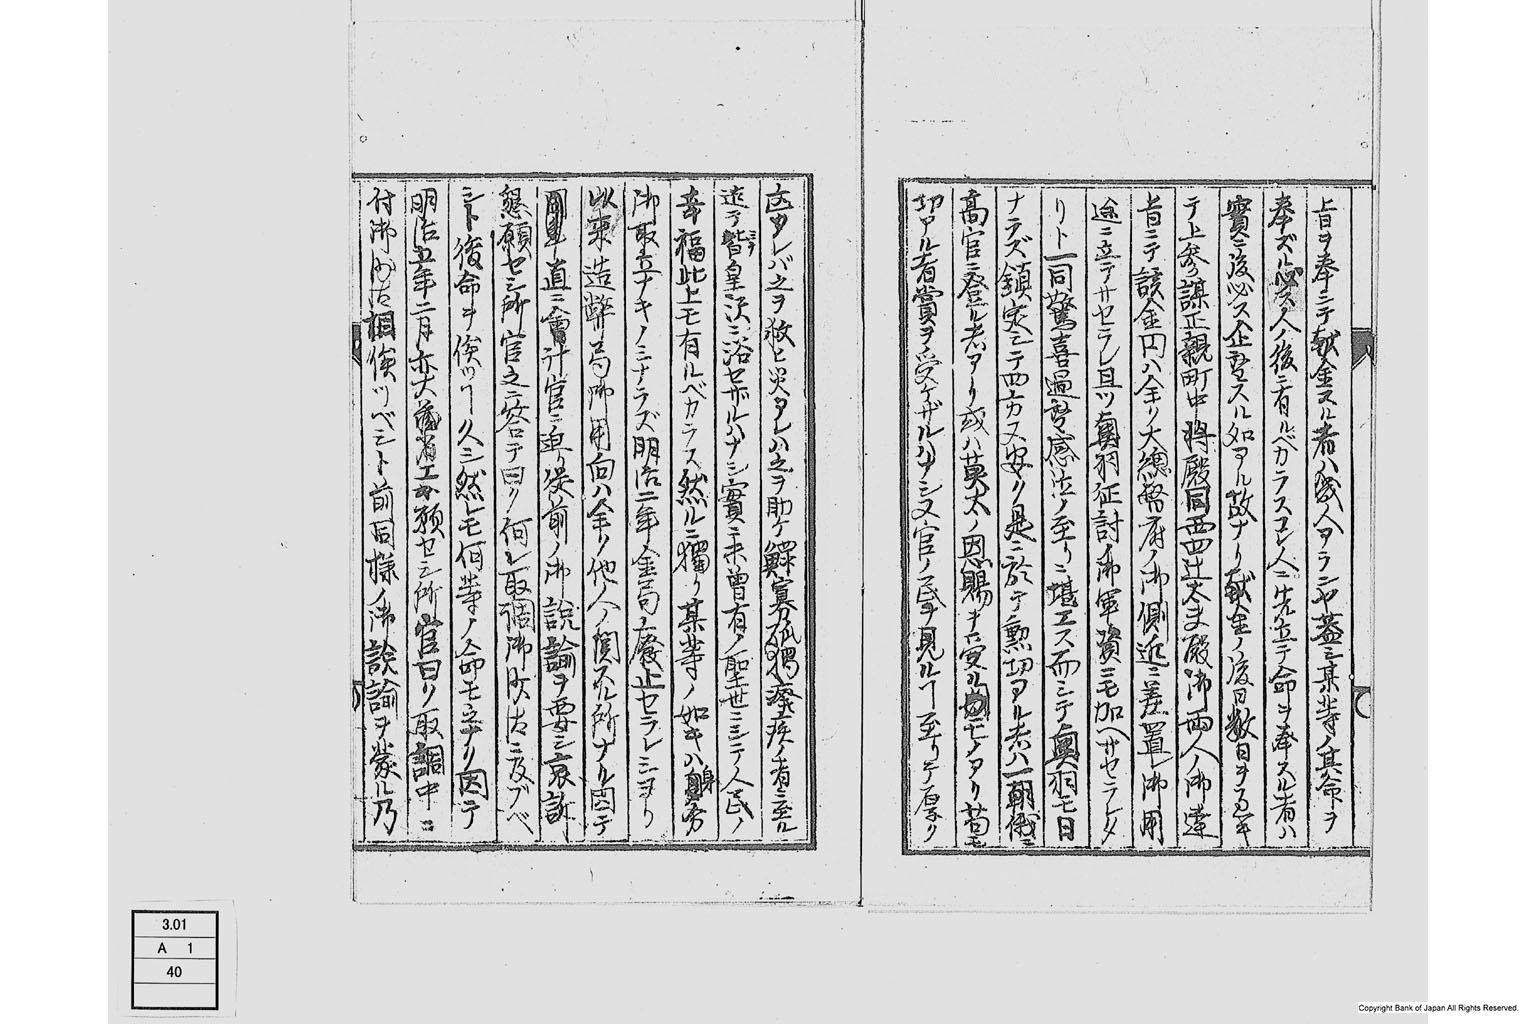 旨ヲ奉シテ献金スル者ハ幾人アランヤ蓋シ某等ノ其命ヲ
奉ズル必ス人ノ後ニ有ルベカラスコレ人ニ先立テ命ヲ奉スル者ハ
實ニ後必ス企望スル如アル故ナリ献金ノ後日数日ヲ
テ上参謀正親町中将殿同西四辻太夫殿御両人ノ御達
旨ニテ該金円ハ全ク大總督府ノ御側近ニ差置レ御用
途ニ立テサセラレ且ツ奥羽征討ノ御軍資ニモ加ヘサセラレタ
リト一同驚喜過望感泣ノ至リニ堪エス而シテ奥羽モ日
ナラズ鎮定シテ四方又安リ是ニ於テ勲功アル者ハ一朝俄ニ
高官ニ登ル者アリ或ハ莫大ノ恩賜ヲ受ルモノアリ苟モ
功アル者賞ヲ受ケザルハナシ又官ノ民ヲ見ルヿ至リテ厚ク
アレバ之ヲ救ヒ災アレハ之ヲ助ケ鰥寡孤獨癈疾ノ者ニ至ル
迄テ皆皇沢ニ浴セザルハナシ實ニ未曾有ノ聖世ニシテ人民ノ
幸福此上モ有ルベカラス然ルニ獨リ某等ノ如キハ身
御取立ナキノミナラズ明治二年金局ヲ廢止セラレシヨリ
以来造幣局御用向ハ全ク他ノ人ノ関スル所ナル因テ
直ニ會計官ニ迫リ従前ノ御説諭ヲ要シ哀訴
懇願セシ所官之ニ答テ曰ク何レ取調御沙汰ニ及ブベ
シト後命ヲ俟ツヿ久シ然レモ何等ノ命モ之ナク因テ
明治五年二月亦大藏省エ願セシ所官曰ク取調中ニ
付御沙汰相俟ツベシト前同様ノ御説諭ヲ蒙ル乃
3.01
A 1
40
Copyright Bank of Japan All Rights Reserved.